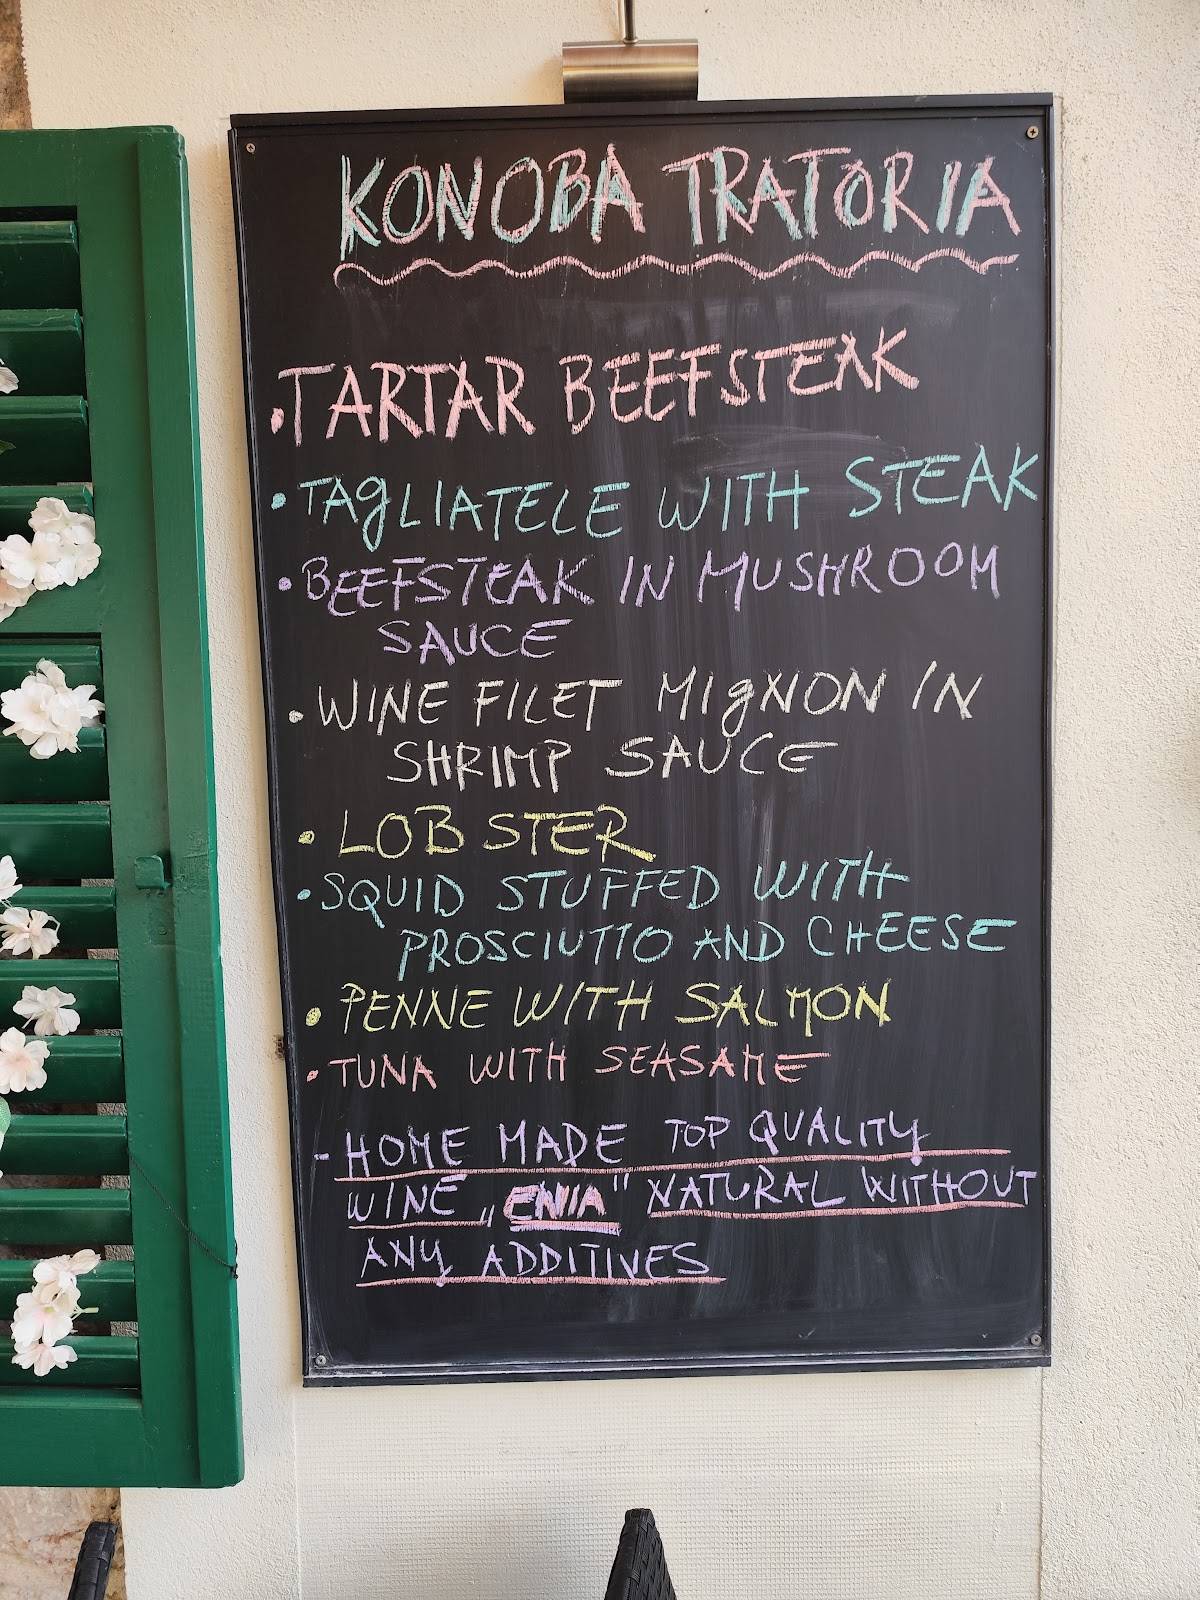 KONOBA TRATORIA
• TARTAR BEEFSTEAK
• TAgLIATELE WITH STEAK
• BEEFSTEAK IN MUSHROOM
SAUCE
• WINE FILET MIgNON IN
SHRIMP SAUCE
• LOBSTER
• SQUID STUFFED WITH
PROSCIUTTO AND CHEESE
• PENNE WITH SALMON
• TUNA WITH SEASAME
- HOME MADE TOP QUALITY
WINE „ENIA" NATURAL WITHOUT
ANY ADDITIVES